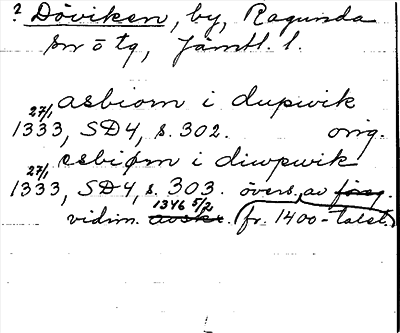 ? Döviken, by, Ragunda
sn o tg, Jämtl. l.
asbiorn i dupwik
27/1 1333, SD4, s. 302. orig.
esbiøm i diwpwik
27/1 1333, SD4, s. 303. övers. av föreg.
vidim. avskr. 1346 5/2 (fr. 1400-talet.)